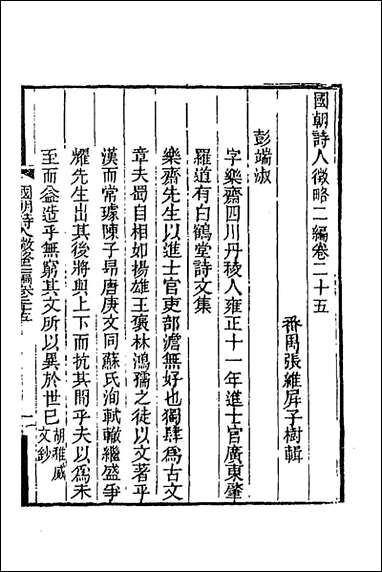 國朝詩人徵略二編卷二十五
番禺張維屏子樹輯
彭端淑
字樂齋四川丹稜人雍正十一年進士官廣東肇
羅道有白鶴堂詩文集
樂齋先生以進士官吏部澹無好也獨肆爲古文
章夫蜀自相如揚雄王褒林鴻孺之徒以文著乎
漢而常璩陳子昻唐庚文同蘇氏洵軾轍繼盛爭
耀先生出其後將與上下而抗其間乎夫以爲未
至而益造乎無窮其文所以異於世巳胡稚威文鈔
國朝詩人徵略二編卷二十五
一